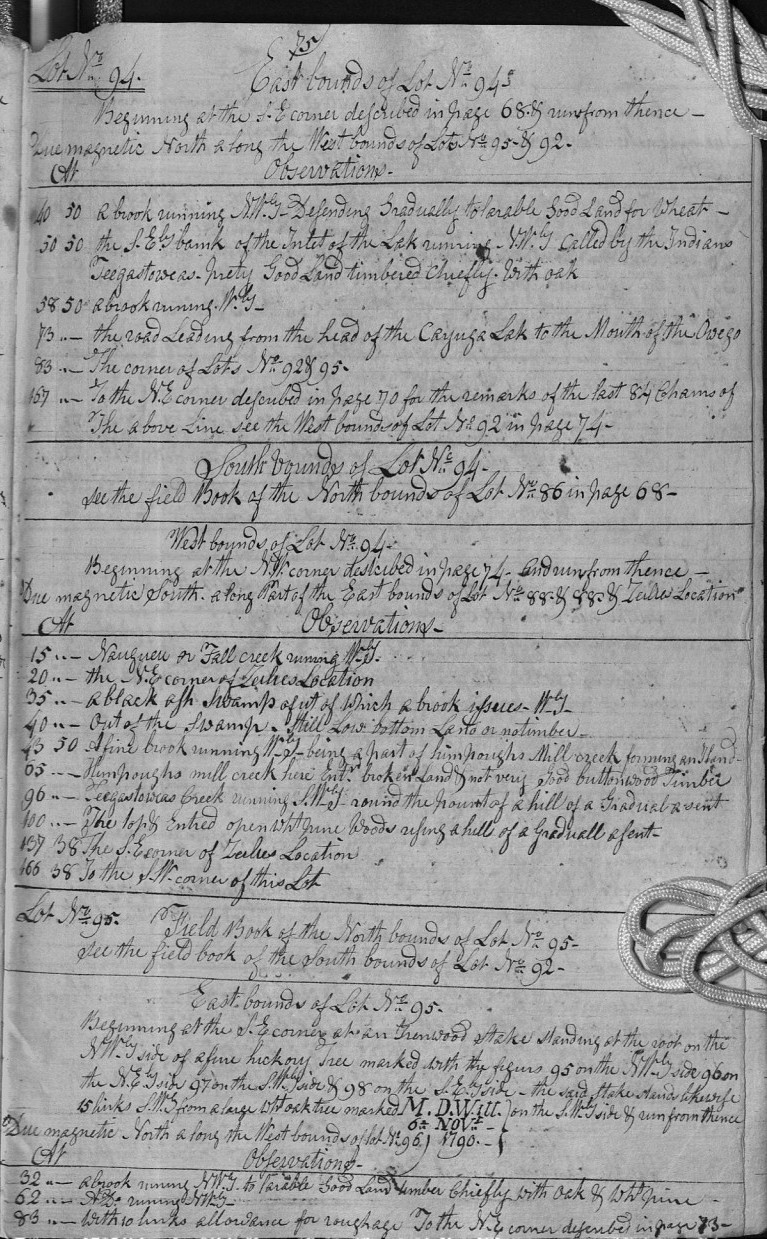 75
Lot No. 94.
East bounds of Lot No. 94
Beginning at the S.E corner described in page 68. & run from thence —
Due magnetic North along the West bounds of Lots No. 95. & 92.
At Observations.
40 50 a brook running N.W.ly Defending Gradually to larable Good Land for Wheat —
50 50 the S.E.ly bank of the Inlet of the Lak running N.W.ly Called by the Indians
Teegastoweas. prety Good Land timbered Chiefly. With oak
58 50 a brook runing. W.ly
73 „ — the road Leading from the head of the Cayuga Lak to the Mouth of the Owego
83 „ — The corner of Lots No. 92 & 95.
167 „ — To the N.E corner described in page 70 for the remarks of the last 84 Chains of
The above Line see the West bounds of Lot No. 92 in page 74 —
South bounds of Lot No. 94.
see the field Book of the North bounds of Lot No. 86 in page 68 —
West bounds of Lot No. 94.
Beginning at the N.W. corner described in page 74. and run from thence —
Due magnetic South. along Part of the East bounds of Lot No. 88. & & Location
At Observations.
15 „ — or Fall creek runing W.ly
20 „ — the N.E corner of Location
35 „ — a black ash Swamp out of which a brook issues W.ly
40 „ — Out of the Swamp. Still Low bottom Land or no timber
43 50 A fine brook running W.ly being a part of humpoughs Mill creek forming an Iland
65 „ — Humpoughs mill creek here broken Land & not very Good buttonwood Timber
96 „ — Teegastoweas Creek running S.W.ly round the point of a hill of a Gradual asent
100 „ — The top & Entred open Wht Pine Woods rising a hill of a Graduall asent
137 38 The S.E corner of Location
166 38 To the S.W. corner of this Lot
Lot No. 95. Field Book of the North bounds of Lot No. 95.
see the field book of the South bounds of Lot No. 92 —
East bounds of Lot No. 95.
Beginning at the S.E corner at an Irenwood stake standing at the root on the
N.W.ly side of a fine hickory Tree marked with the figurs 95 on the N.W.ly side 96 on
the N.E.ly side 97 on the S.W.ly side & 98 on the S.E.ly side — the said stake stands likewise
15 links S.W.ly from a large Wht oak tree marked M. D. Witt. on the S.W.ly side & run from thence
6th Novr
Due magnetic North along the West bounds of lot No. 96. 1790.
At Observations.
32 „ — a brook runing N.W.ly to larable Good Land timber Chiefly with Oak & Wht pine —
62 „ — A Do. runing N.W.ly
83 „ — With 10 links allowance for roughage To the N.E corner described in page 73 —